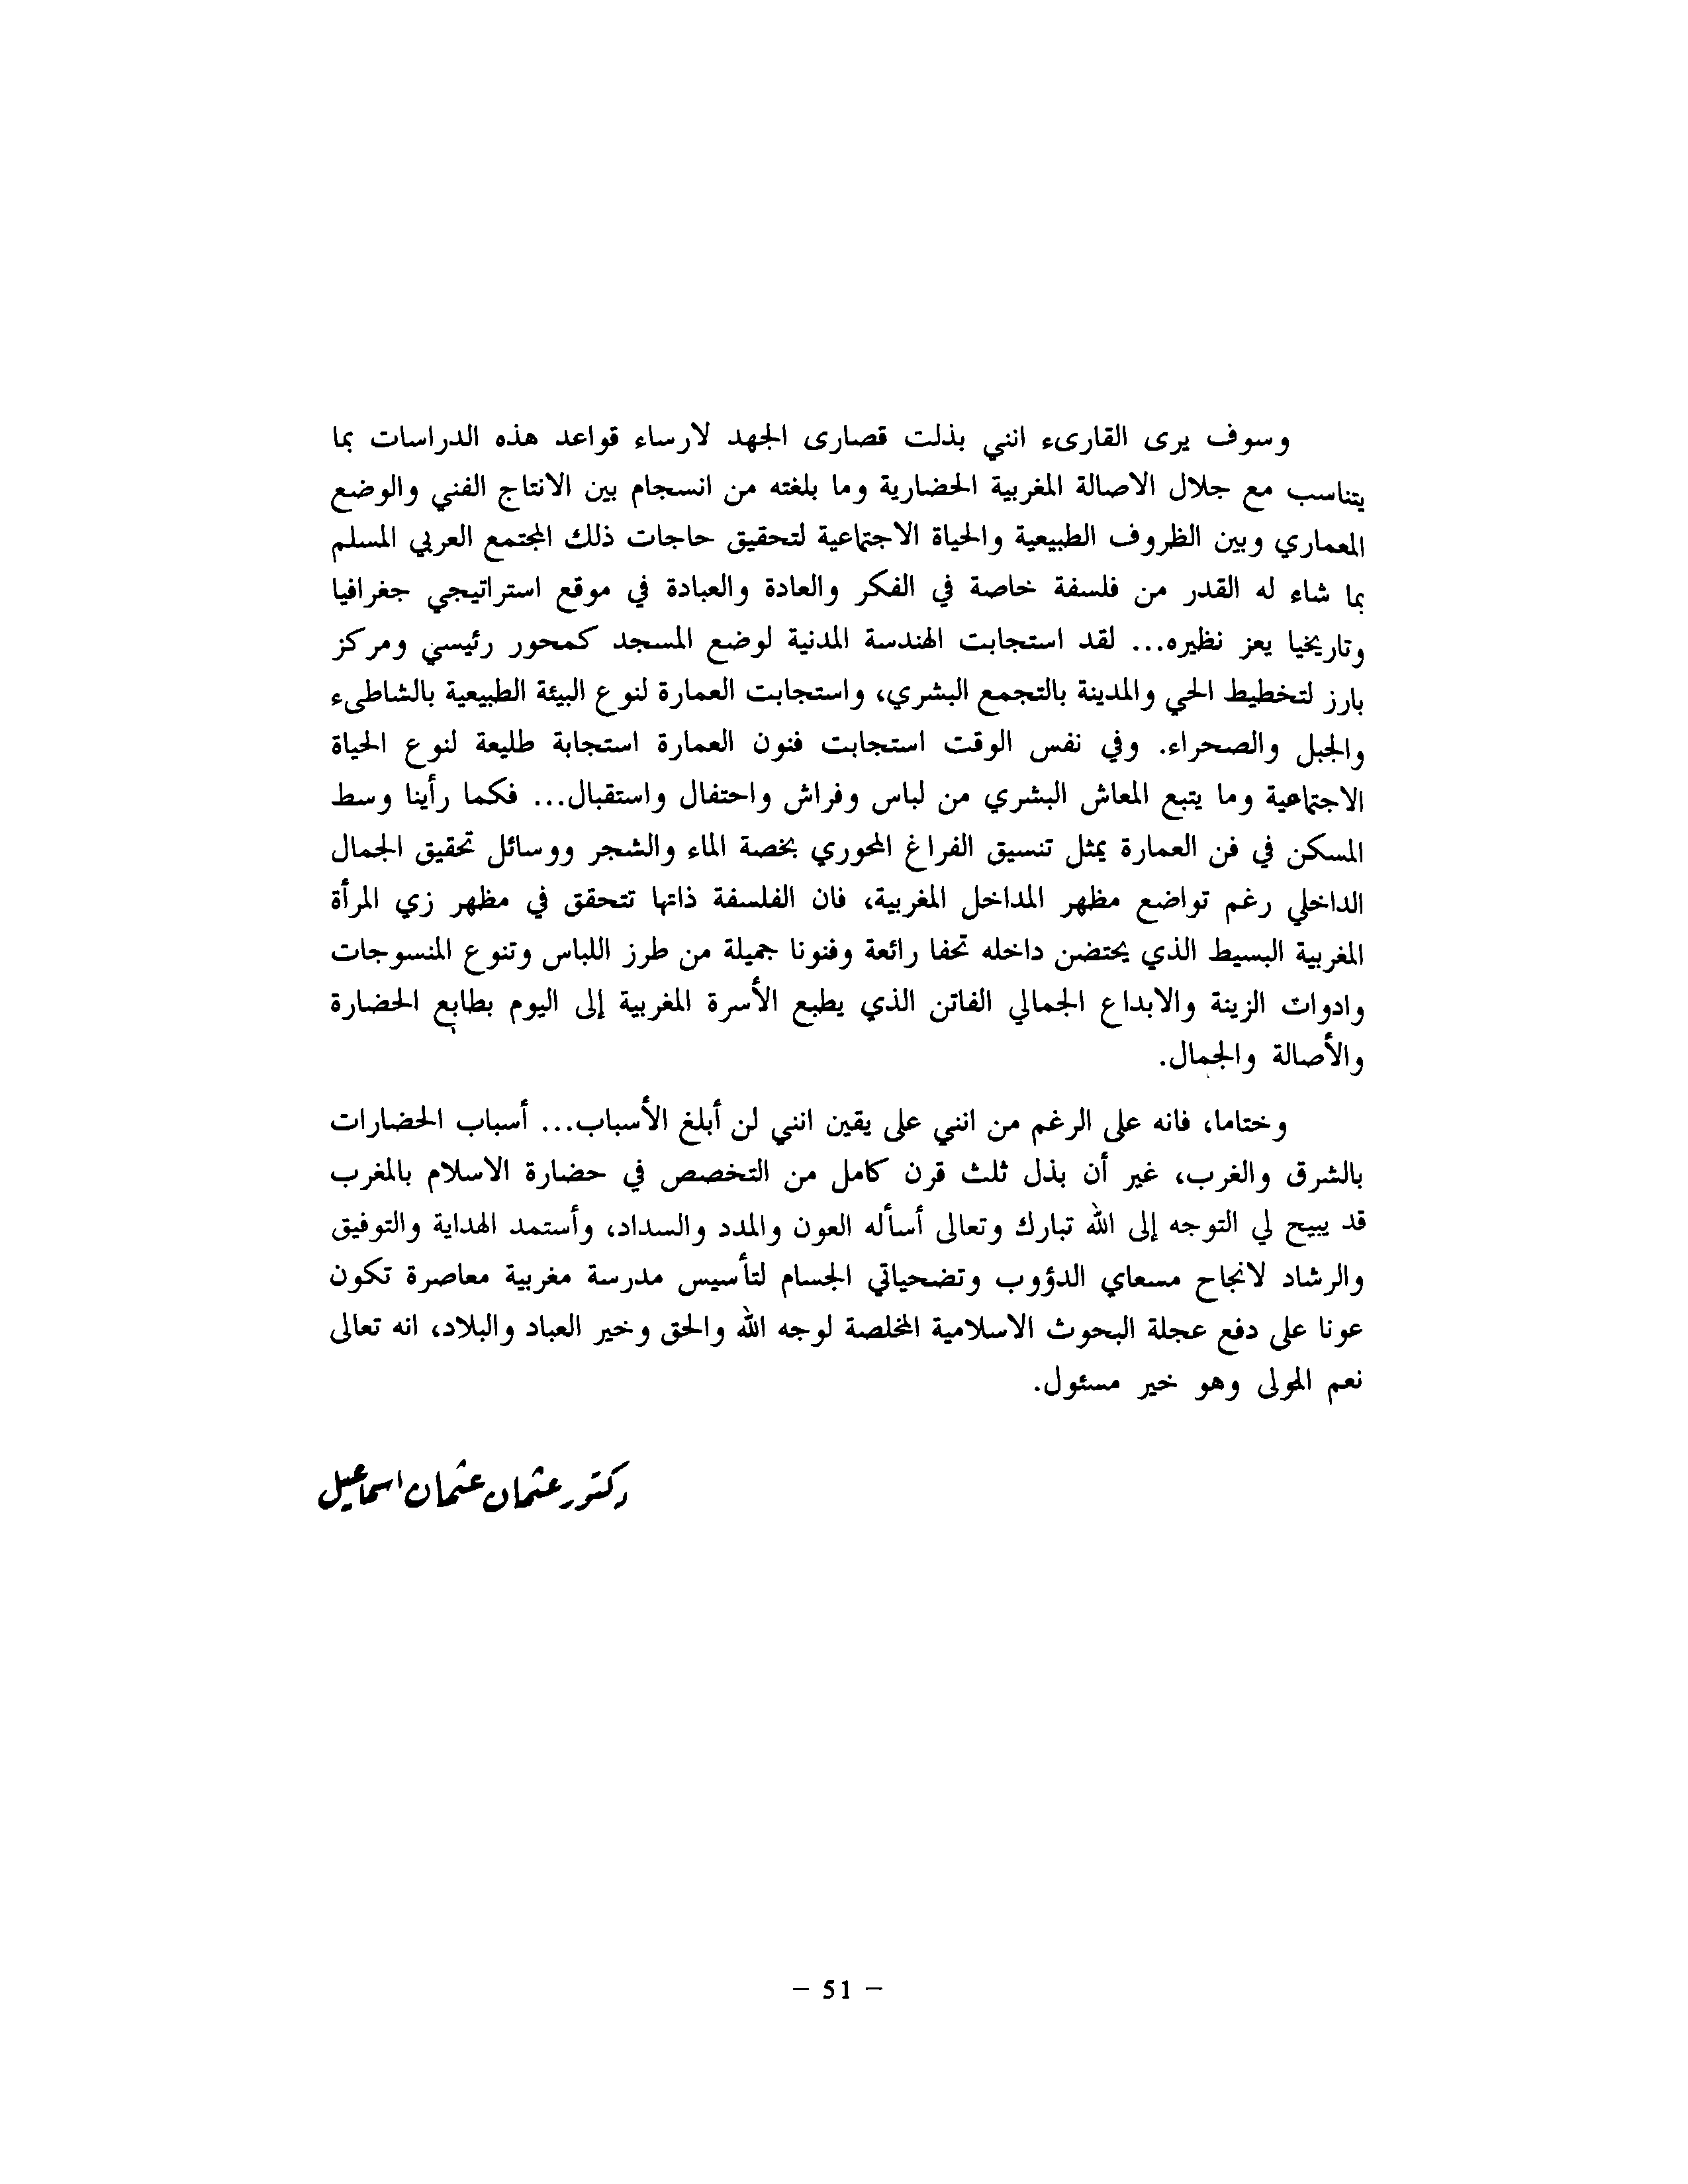 وسوف يرى القارىء انني بذلت قصارى الجهد لارساء قواعد هذه الدراسات بما
يتناسب مع جلال الاصالة المغربية الحضارية وما بلغته من انسجام بين الانتاج الفني والوضع
المعماري وبين الظروف الطبيعية والحياة الاجتماعية لتحقيق حاجات ذلك المجتمع العربي المسلم
بما شاء له القدر من فلسفة خاصة في الفكر والعادة والعبادة في موقع استراتيجي جغرافيا
وتاريخيا يعز نظيره... لقد استجابت الهندسة المدنية لوضع المسجد كمحور رئيسي ومركز
بارز لتخطيط الحي والمدينة بالتجمع البشري، واستجابت العمارة لنوع البيئة الطبيعية بالشاطىء
والجبل والصحراء. وفي نفس الوقت استجابت فنون العمارة استجابة طليعة لنوع الحياة
الاجتماعية وما يتبع المعاش البشري من لباس وفراش واحتفال واستقبال... فكما رأينا وسط
المسكن في فن العمارة يمثل تنسيق الفراغ المحوري بخصة الماء والشجر ووسائل تحقيق الجمال
الداخلي رغم تواضع مظهر المداخل المغربية، فان الفلسفة ذاتها تتحقق في مظهر زي المرأة
المغربية البسيط الذي يحتضن داخله تحفا رائعة وفنونا جميلة من طرز اللباس وتنوع المنسوجات
وادوات الزينة والابداع الجمالي الفاتن الذي يطبع الأسرة المغربية إلى اليوم بطابع الحضارة
والأصالة والجمال.
وختاما، فانه على الرغم من انني على يقين انني لن أبلغ الأسباب... أسباب الحضارات
بالشرق والغرب، غير أن بذل ثلث قرن كامل من التخصص في حضارة الاسلام بالمغرب
قد يبيح لي التوجه إلى الله تبارك وتعالى أسأله العون والمدد والسداد، وأستمد الهداية والتوفيق
والرشاد لانجاح مسعاي الدؤوب وتضحياتي الجسام لتأسيس مدرسة مغربية معاصرة تكون
عونا على دفع عجلة البحوث الاسلامية المخلصة لوجه الله والحق وخير العباد والبلاد، انه تعالى
نعم المولى وهو خير مسئول.
دكتور عثمان عثمان اسماعيل
– 51 –